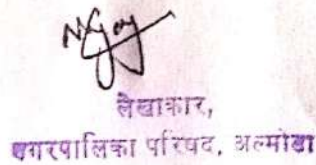 लेखाकार,
नगरपालिका परिषद, अल्मोडा